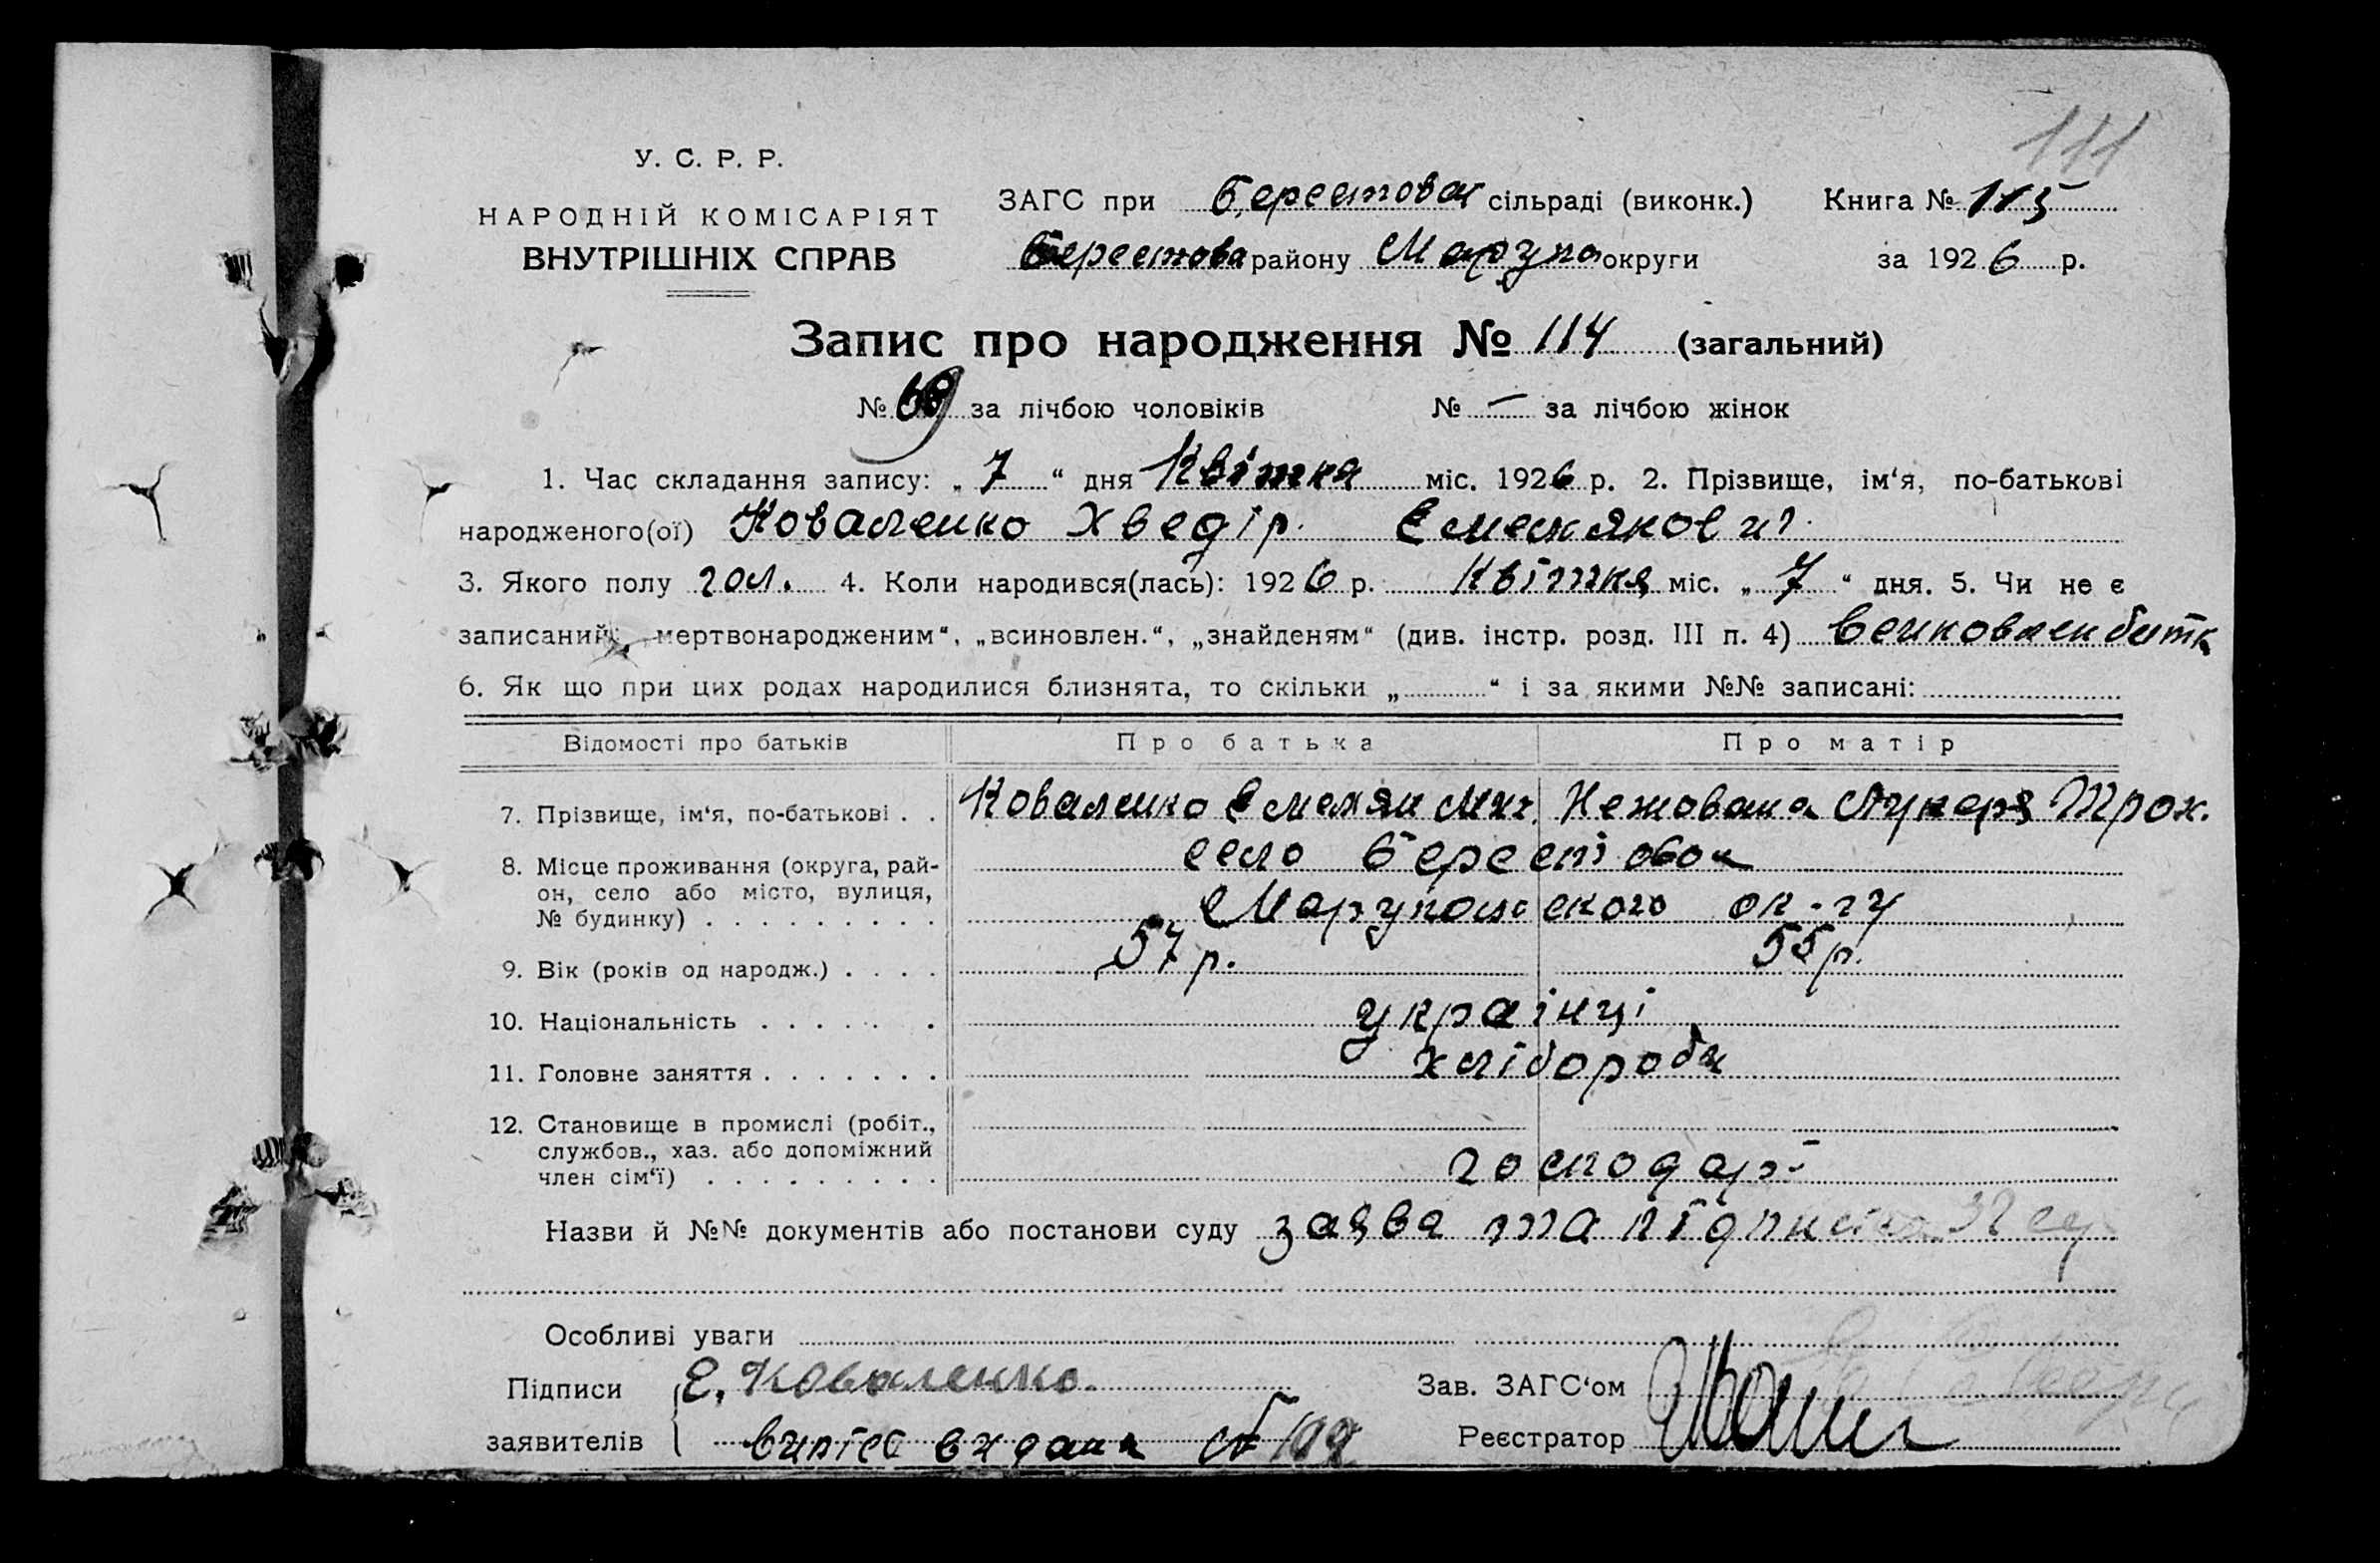 111
У. С. Р. Р.
НАРОДНІЙ КОМІСАРІЯТ
ВНУТРІШНІХ СПРАВ
ЗАГС при Берестовій сільраді (виконк.) Книга № 115
Берестова району Маріупо округи за 1926 р.
Запис про народження № 114 (загальний)
№ 69 за лічбою чоловіків № — за лічбою жінок
1. Час складання запису: „7“ дня Квітня міс. 1926 р. 2. Прізвище, ім‘я, по-батькові
народженого(ої) Коваленко Хведір Емельянович
3. Якого полу чол. 4. Коли народився(лась): 1926 р. Квітня міс. „7“ дня. 5. Чи не є
записаний: „мертвонародженим“, „всиновлен.“, „знайденям“ (див. інстр. розд. III п. 4)
6. Як що при цих родах народилися близнята, то скільки „ “ і за якими №№ записані:
Відомості про батьків Про батька Про матір
7. Прізвище, ім‘я, по-батькові . . Коваленко Емельян Мих. Нежована Лукеря Трох.
8. Місце проживання (округа, рай-
он, село або місто, вулиця,
№ будинку) . . . . . . . . . село Берестовое
ского ок-гу
9. Вік (років од народж.) . . . . 57 р. 55 р.
10. Національність . . . . . . українці
11. Головне заняття . . . . . . . хлібороби
12. Становище в промислі (робіт.,
службов., хаз. або допоміжний
член сім‘ї) . . . . . . . . . господарі
Назви й №№ документів або постанови суду заява та підписка
Особливі уваги
Підписи Е. Коваленко. Зав. ЗАГС‘ом
заявителів випись видана Реєстратор